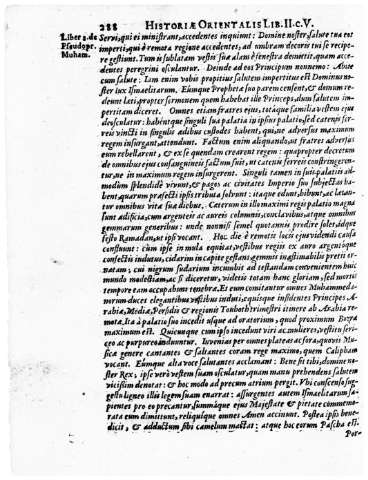 288 HISTORIÆ ORIENTALIS LIB. II. C. V.
Liber 3. de Pseudopr. Muham.
Servi, qui ei ministrant, accedentes inquiunt: Domine noster, salute tua nos
imperti, qui è remota regione accedentes, ad umbram decoris tui se recipere
gestiunt. Tum is sublatam vestis suæ alam benevolè demittit, quam accedentes
peregrini osculantur. Deinde ad eos Principum nonnemo: Abite
cum salute: Iam enim vobis propitius salutem impertitus est Dominus noster
lux Ismaelitarum. Eumque Propheta suo parem censent, & domum redeunt
læti, propter sermonem quem habebat ille Princeps, dum salutem impertitam
diceret. Omnes etiam fratres ejus, totaque familia vestem ejus
osculantur: habentque singuli sua palatia in ipsius palatio, sed catenis ferreis
vincti in singulis ædibus custodes habent, qui, ne adversus maximum
regem insurgant, attendunt. Factum enim aliquando, ut fratres adversus
eum rebellarent, & ex se quendam crearent regem: quapropter decretum
de omnibus ejus consanguineis factum fuit, ut catenis ferreis constringerentur,
ne in maximum regem insurgerent. Singuli tamen in suis palatiis admodum
splendidè vivunt, & pagos ac civitates Imperio suo subjectas habent,
quarum præfecti ipsis tributa solvunt: itaque edunt, bibunt, ac lætantur
omnibus vitæ suæ diebus. Cæterum in illo maximi regis palatio magna
sunt ædificia, cum argenteis ac aureis columnis, conclavibus, atque omnibus
gemmarum generibus: unde nonnisi semel quotannis prodire solet, idque
festo Ramadan, ut ipsi vocant. Hoc die è remotis locis ejus videndi causa
confluunt: cum ipse in mula equitat, vestibus regiis ex auro argentoque
confectis indutus, cidarim in capite gestans, gemmis inæstimabilis pretii ornatam;
cui nigrum sudarium incumbit ad testandam convenientem huic
mundo modestiam, ac si diceret, videtis totam hanc gloriam, sed mortis
tempore eam occupabunt tenebræ. Et eum comitantur omnes Muhammedanorum
duces elegantibus vestibus induti, equisque insidentes Principes Arabiæ,
Mediæ, Persidis & regionis Tombothrinestri itinere ab Arabia remotæ.
Ita à palatio suo incedit usque ad oratorium, quod proximum Botra
maximum est. Quicunque cum ipso incedunt viri ac mulieres, vestitu serico
ac purpureo induuntur. Invenias per omnes plateas ac fora, quovis Musica
genere cantantes & saltantes coram rege maximo, quem Calipham
vocant. Eumque alta voce salutantes acclamant: Bene sit tibi, domine noster
Rex, ipse verò vestem suam osculatur, quam manu prehendens salutem
vicissim denotat: & hoc modo ad precum atrium pergit. Ubi conscenso suggestu
ligneo illis legem suam enarrat: assurgentes autem Ismaelitarum sapientes
pro eo precantur, summaque ejus Majestate & pietate commemorata
eum dimittunt, reliquique omnes Amen accinunt. Postea ipsis benedicit,
& adductum sibi camelum mactat: atque hoc eorum Pascha est.
Por-